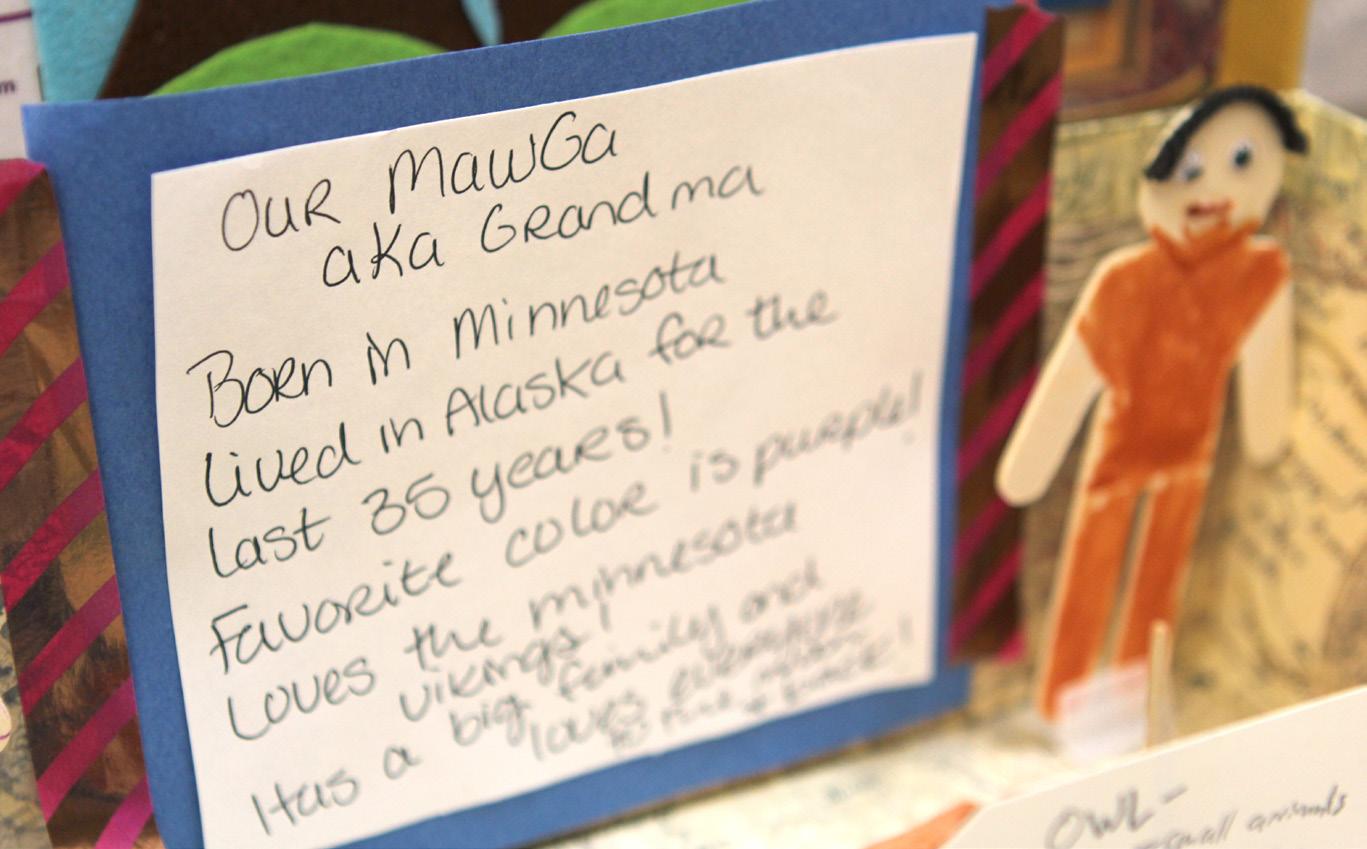 OUR MawGa
aka Grandma
Born in Minnesota
Lived in Alaska for the
last 35 years!
Favorite color is purple!
Loves the Minnesota
Vikings!
Has a big family and
loves everyone
to the moon
& back!
OWL-
small animals
m